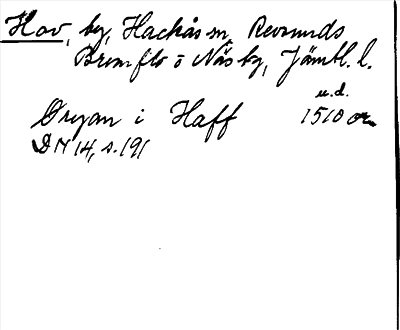 Hov, by, Hackås sn, Revsunds
Brunflo o Näs tg, Jämtl. l.
u.d.
Øryan i Haff 1510 or.
DN 14, s. 191